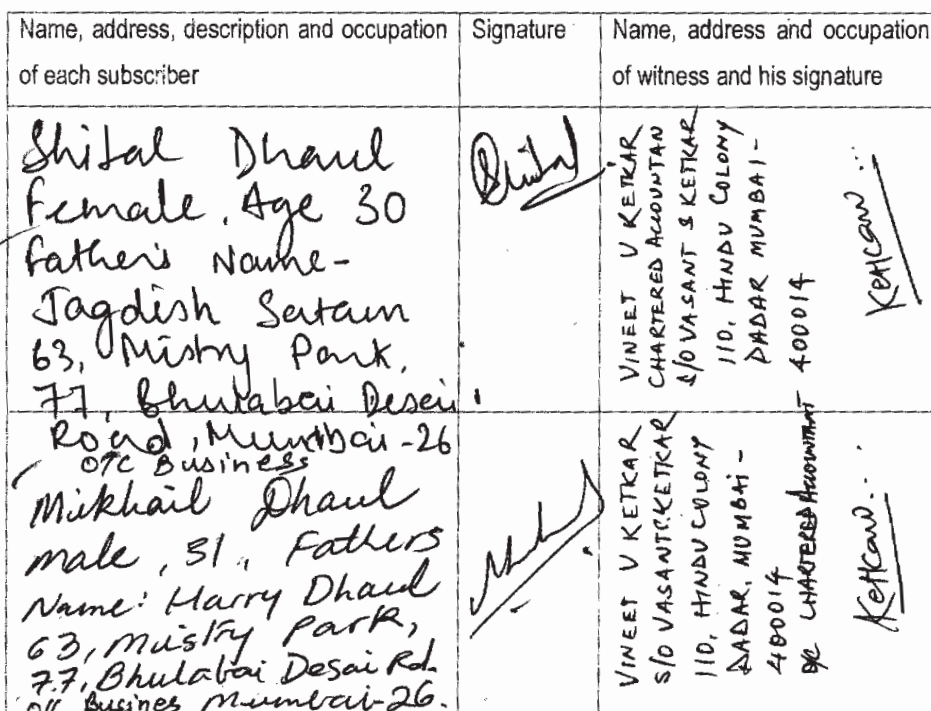 Name, address, description and occupation
of each subscriber
Signature
Name, address and occupation
of witness and his signature
Shital Dhaul
Female, Age 30
Father's Name-
Jagdish Satam
63, Mistry Park,
77, Bhulabai Desai
Road, Mumbai-26
OTC Business
Shital
VINEET U KETKAR
CHARTERED ACCOUNTAN
S/O VASANT S KETKAR
110, HINDU COLONY
DADAR MUMBAI-
400014
Ketkar
Mikhail Dhaul
male, 31, Fathers
Name: Harry Dhaul
63, Mistry Park,
77, Bhulabai Desai Rd.
Busines Mumbai-26.
VINEET U KETKAR
S/O VASANT S. KETKAR
110, HINDU COLONY
DADAR, MUMBAI-
400014
CHARTERED ACCOUNTANT
Ketkar